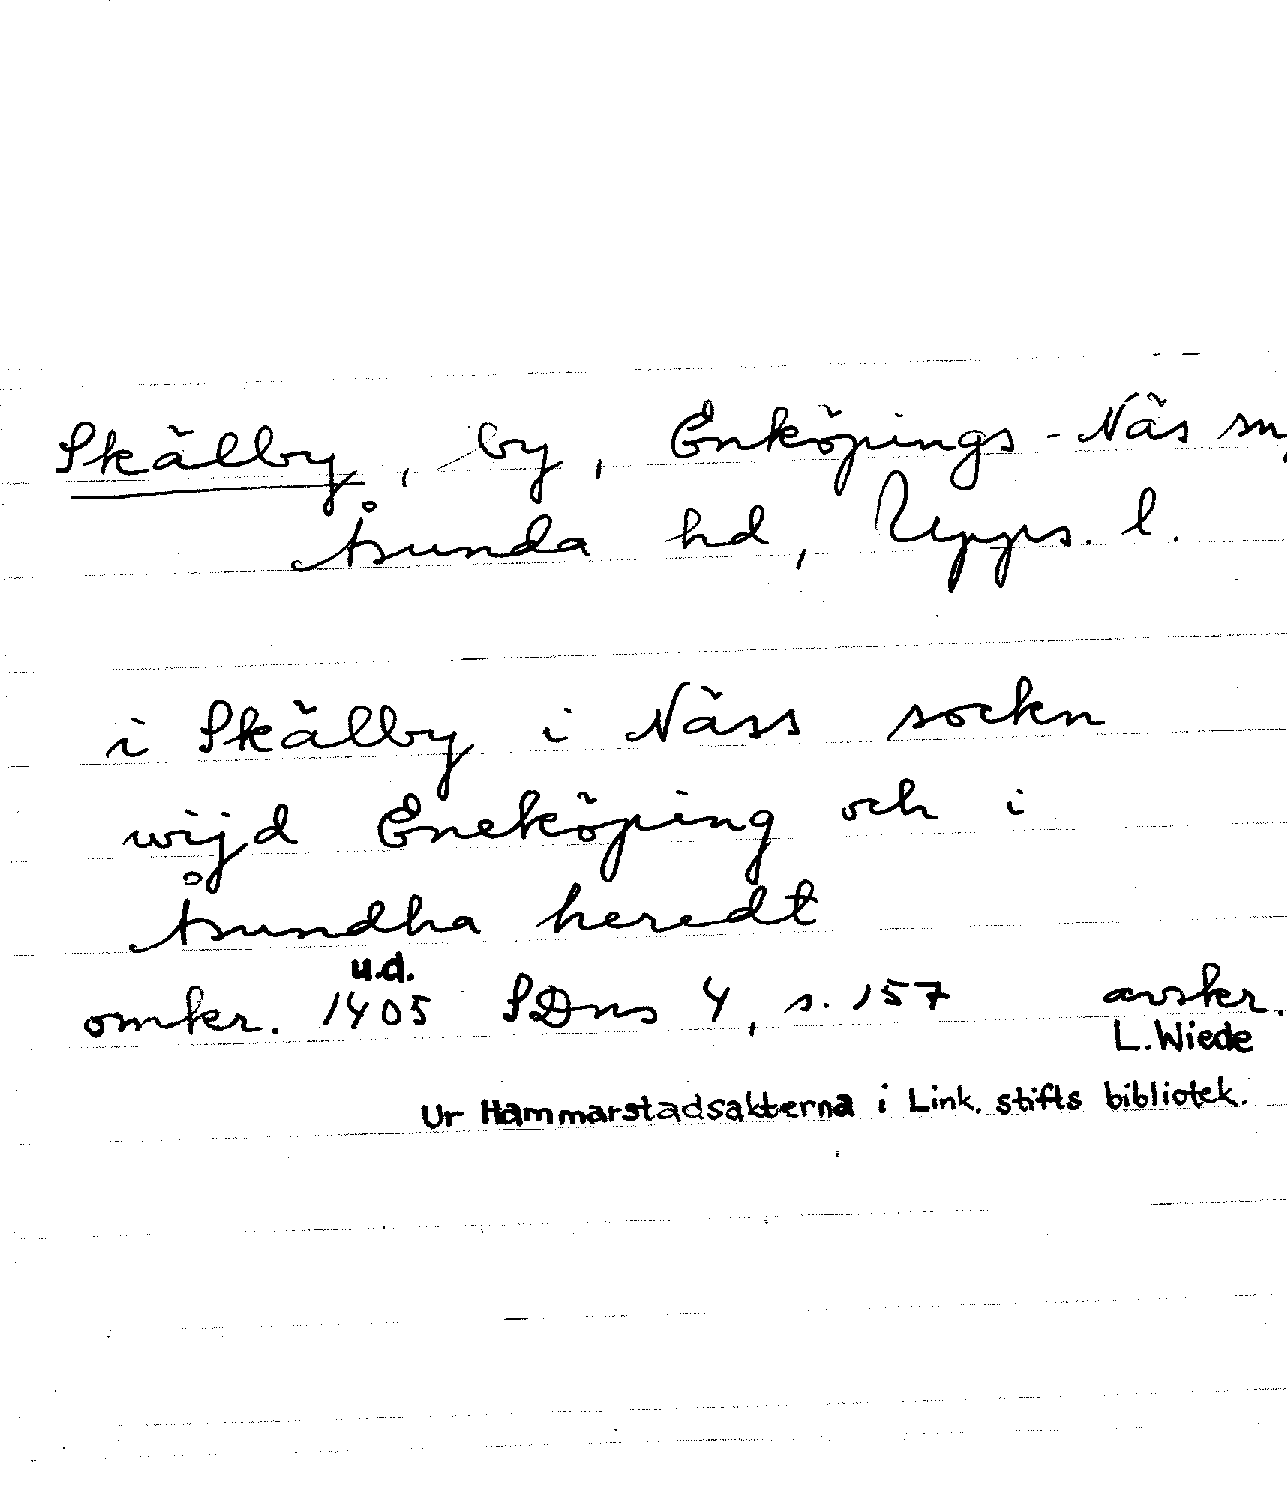 Skälby, by, Enköpings-Näs sn,
Åsunda hd, Upps. l.
i Skälby i Näss sockn
wijd Eneköping och i
Åsundha heredt
u.d.
omkr. 1405 SDns 4, s. 157 avskr.
L. Wiede
Ur Hammarstadsakterna i Link. stifts bibliotek.